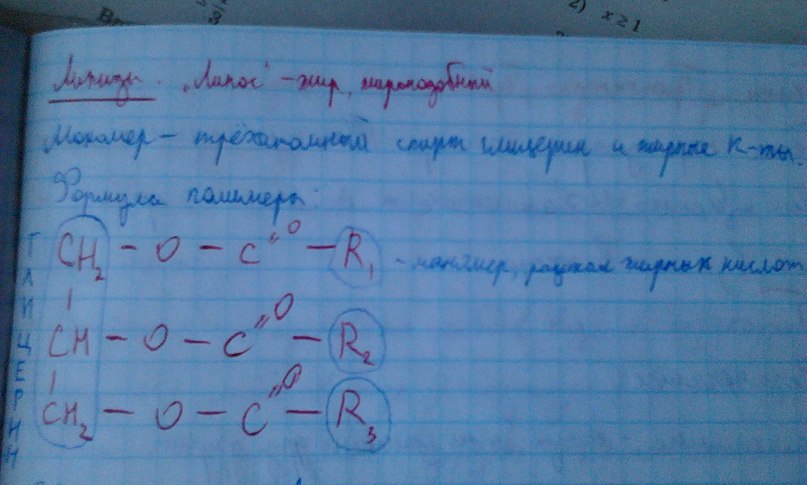 В
3/
2) x ≥ 1
Липиды. „Липос" - жир, жироподобный
Мономер - трёхатомный спирт глицерин и жирные к-ты.
Формула полимера:
CH₂ - O - C =O - R₁ - мономер, радикал жирных кислот
CH - O - C =O - R₂
CH₂ - O - C =O - R₃
ГЛИЦЕРИН